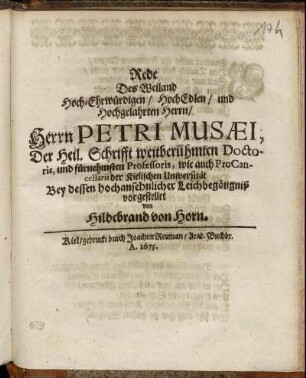 174
Rede
Des Weiland
Hoch-Ehrwürdigen / HochEdlen / und
Hochgelahrten Herrn /
Herrn PETRI MUSÆI,
Der Heil. Schrifft weitberühmten Docto-
ris, und fürnehmsten Professoris, wie auch ProCan-
cellarii der Kielischen Universität
Bey dessen hochansehnlicher Leichbegängniß
vorgestellet
von
Hildebrand von Horn.
Kiel / gedruckt durch Joachim Reuman / Acad. Buchdr.
A. 1675.